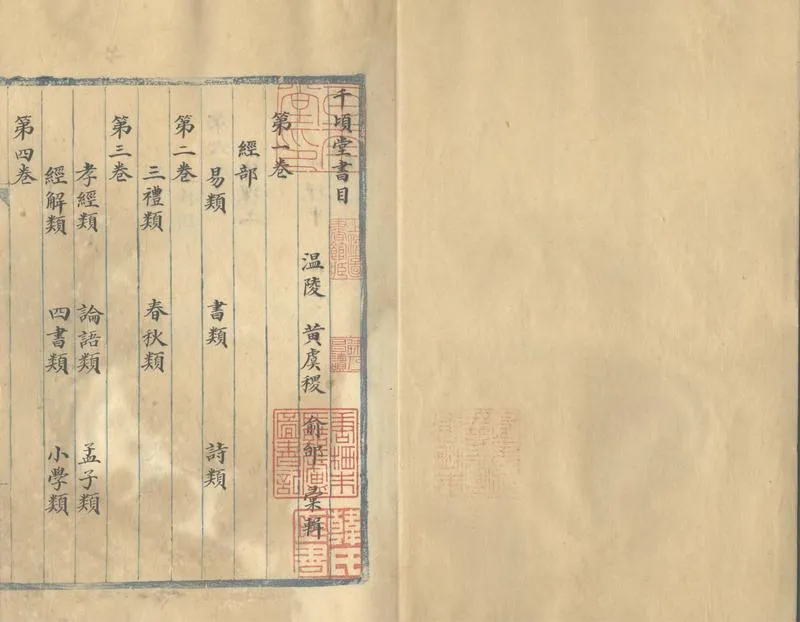 千頃堂書目
温陵 黃虞稷 俞邰 彙輯
第一卷
經部
易類 書類 詩類
第二卷
三禮類 春秋類
第三卷
孝經類 論語類 孟子類
經解類 四書類 小學類
第四卷
韓氏